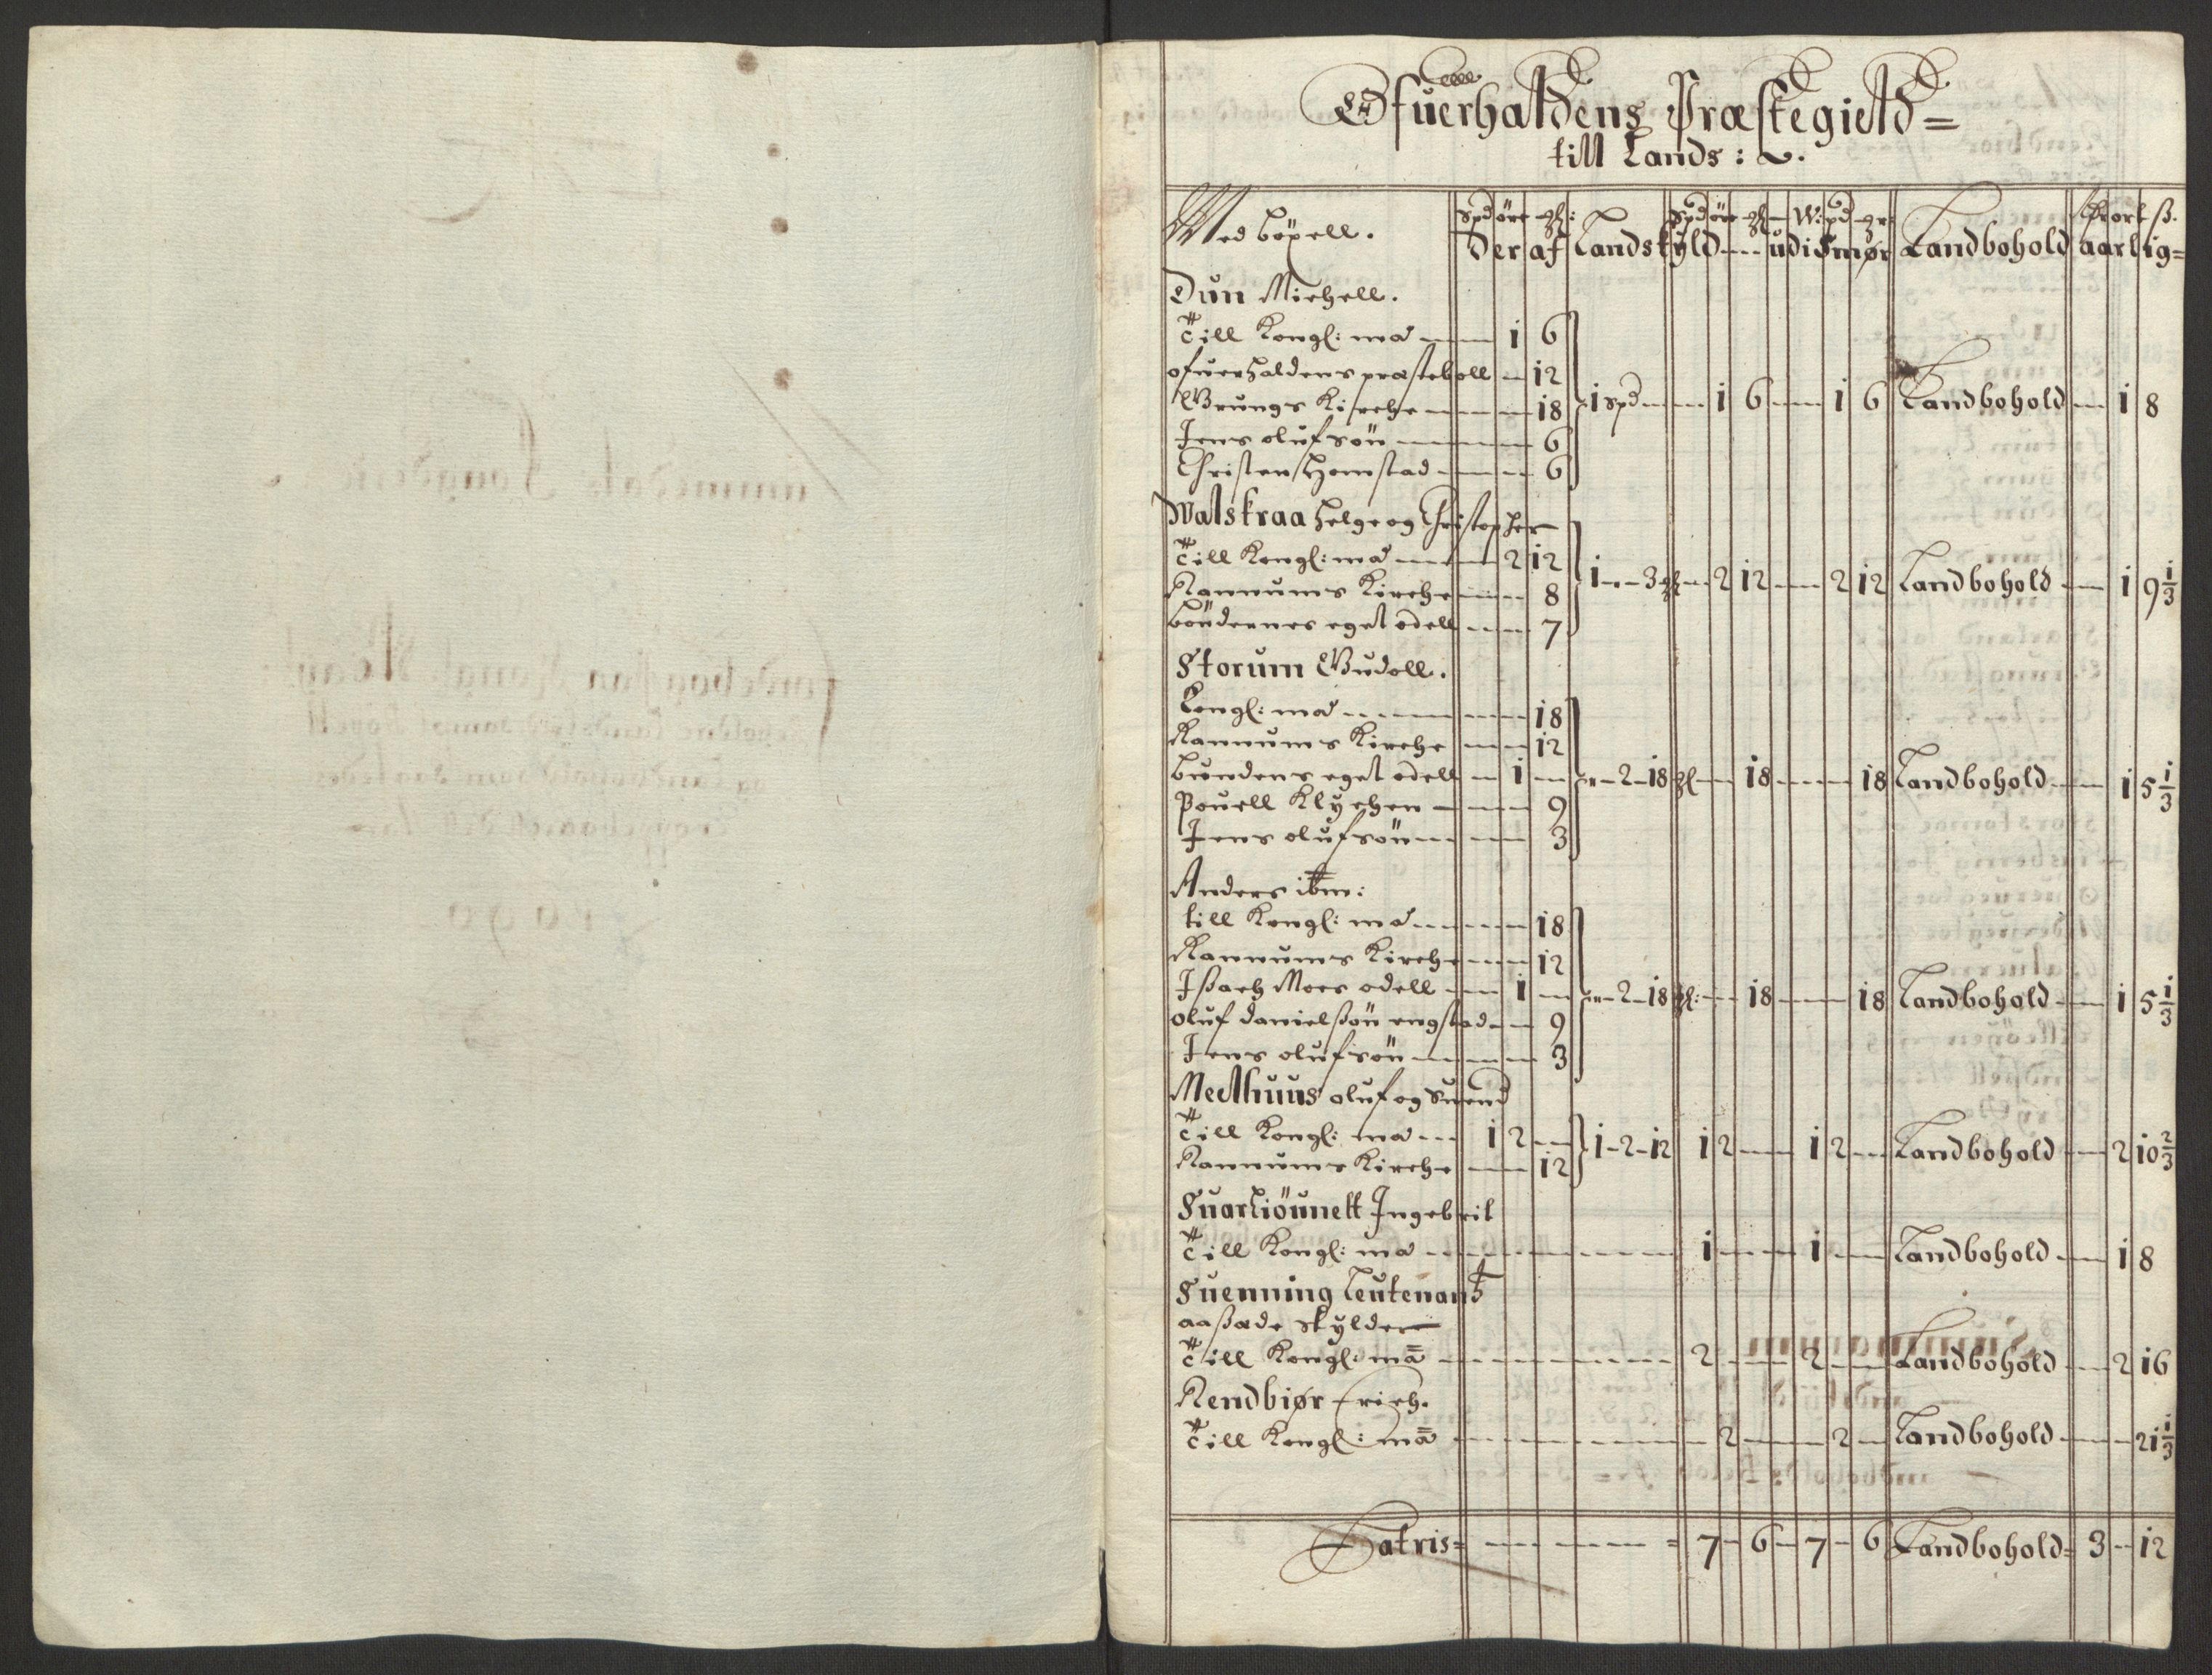 Offuerhaldens Præstegield=
till Lands:
Med böxell. Spd ört gl: Landskyld Spd ört gl W: pd gr: Landbohold Rdr ort ß.
Der af udi Smør aarlig=
Dun Michell.
Till Kongl: ma — 1 6
ofuerhaldens præsteboll — 12
Grungs Kirche — 18 1 spd — 1 6 — 1 6 Landbohold — 1 8
Jens olufsøn — 6
Christen Homstad — 6
Walskraa Helge og Christopher
Till Kongl: ma — 2 12
Rannums Kirche — 8 1 — 3 gl — 2 12 — 2 12 Landbohold — 1 9 1/3
böndernes eget odell — 7
Storum Gudoll.
Kongl: ma — 18
Rannums Kirche — 12
bundens eget odell — 1 — 2 - 18 gl — 18 — 18 Landbohold — 1 5 1/3
Pouell Klychen — 9
Jens olufsøn — 3
Anders ibm:
till Kongl: ma — 18
Rannums Kirche — 12
Jßach Moes odell — 1 — 2 - 18 gl: — 18 — 18 Landbohold — 1 5 1/3
oluf danielßøn engstad — 9
Jens olufsøn — 3
Medhuus oluf og Suend
Till Kongl: ma — 1 2 — 1 - 2 - 12 1 2 — 1 2 — Landbohold — 2 10 2/3
Rannums Kirche — 12
Suartiöunett Ingebrit
Till Kongl: ma — 1 — 1 — Landbohold — 1 8
Suenning Leutenant
aaßæde skylder
Till Kongl: mā — 2 — 2 — Landbohold — 2 16
Rendbiør Erich.
Till Kongl: mā — 2 — 2 — Landbohold — 21 1/3
Latris= — = 7 - 6 - 7 - 6 Landbohold= 3 — 12